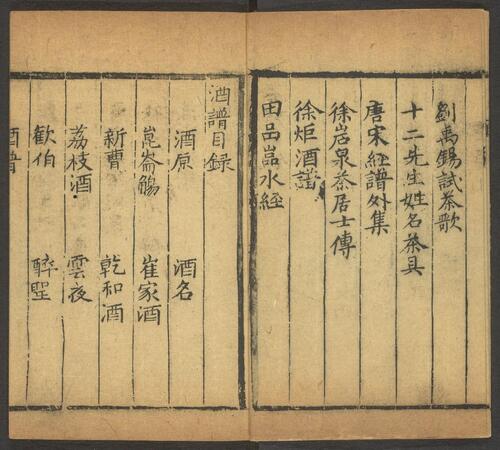 劉禹錫試茶歌
十二先生姓名茶具
唐宋經譜外集
徐岩泉茶居士傳
徐炬酒譜
田品嵓水經
酒譜目録
酒原 酒名
崑崙觴 崔家酒
新曹 乾和酒
荔枝酒 雲夜
歡伯 醉聖
酒譜